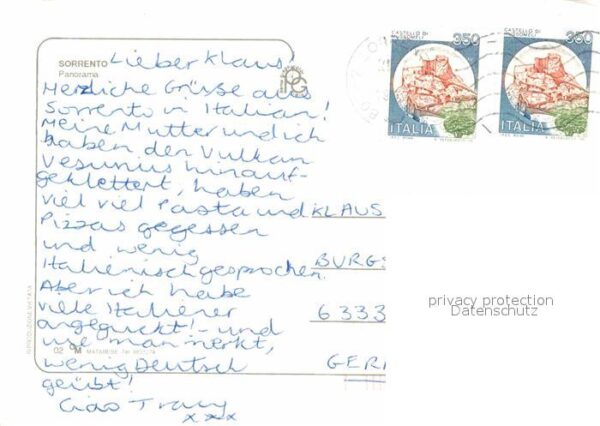 SORRENTO
Panorama
Lieber Klaus,
Herzliche Grüsse aus
Sorrento in Italian!
Meine Mutter und ich
haben den Vulkan
Vesuvius hinauf-
geklettert, haben
viel viel Pasta und
Pizzas gegessen
und wenig
Italienisch gesprochen.
Aber ich habe
viele Italiener
angeguckt! - und
wie man merkt,
wenig Deutsch
geübt!
Ciao Tracy
x x x
CASTELLO DI
350
ITALIA
CASTELLO DI
350
ITALIA
KLAUS
BURGS
6333
GER
privacy protection
Datenschutz
RIPRODUZIONE VIETATA
02